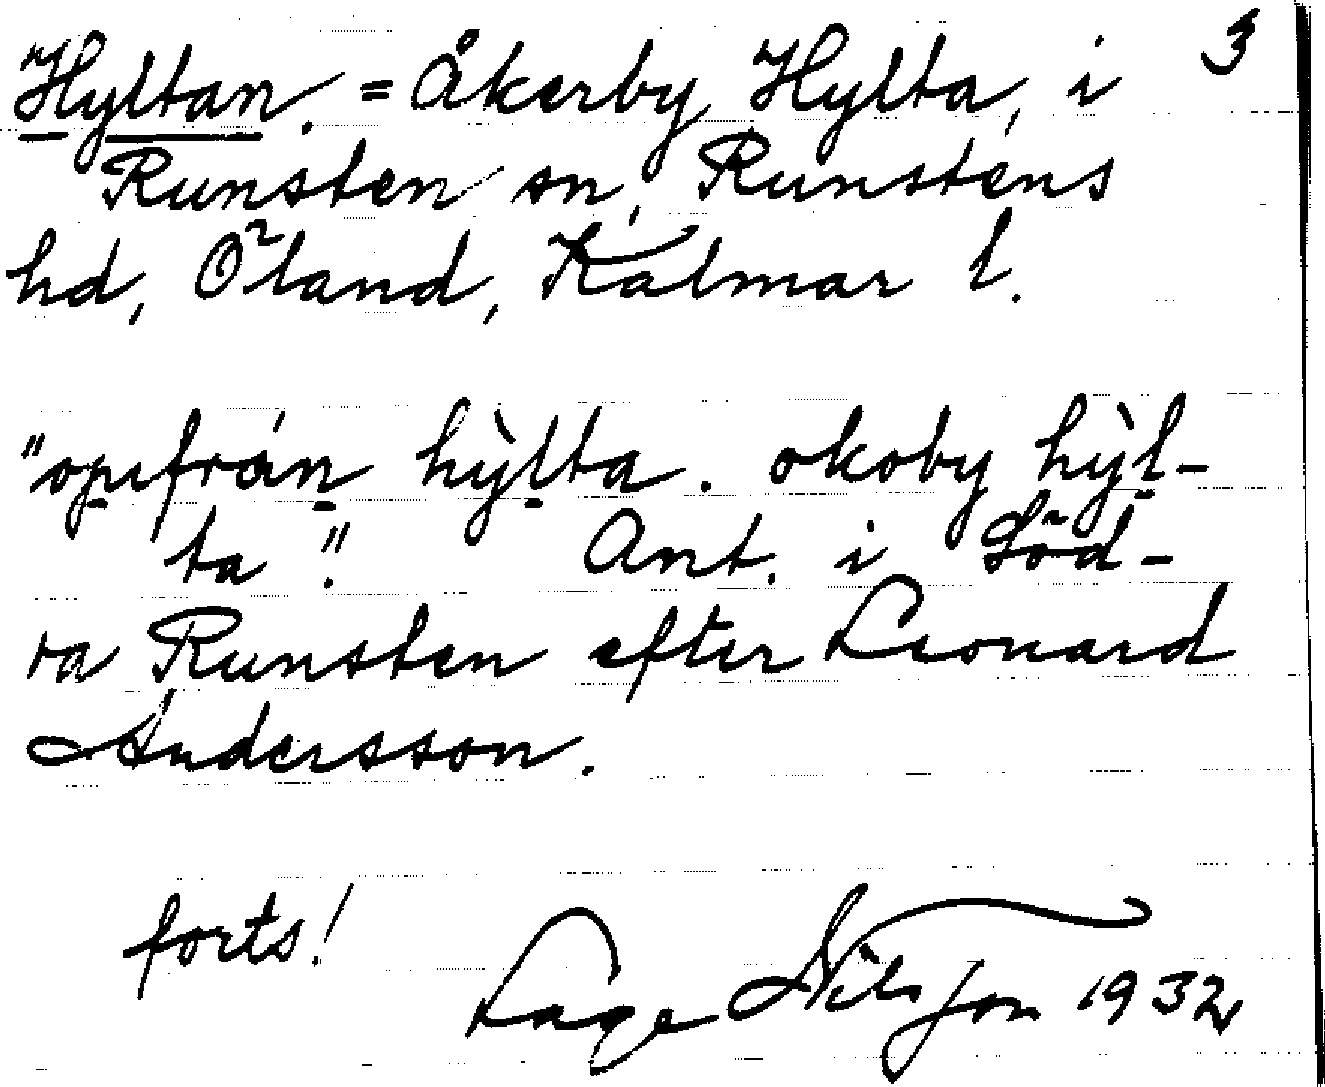 Hyltan. = Åkerby Hylta, i 3
Runsten sn, Runstens
hd, Öland, Kalmar l.
"opifrán hỳlta. okoby hỳl-
ta". Ant. i Söd-
ra Runsten efter Leonard
Andersson.
forts! Lage Nilsson 1932